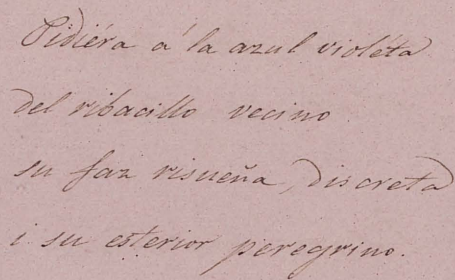 Pidiéra á la azul violéta
del ribacillo vecino
su faz risueña, discreta
i su esterior peregrino.